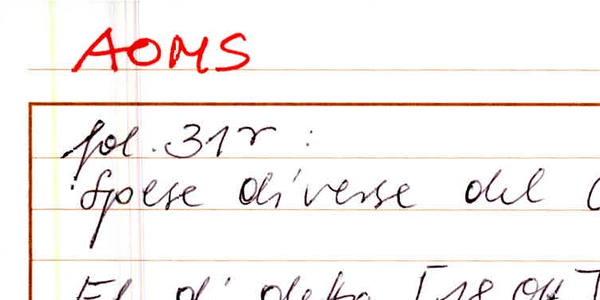 AOMS
fol. 31r :
Spese diverse del
El di detto [18 Ott]